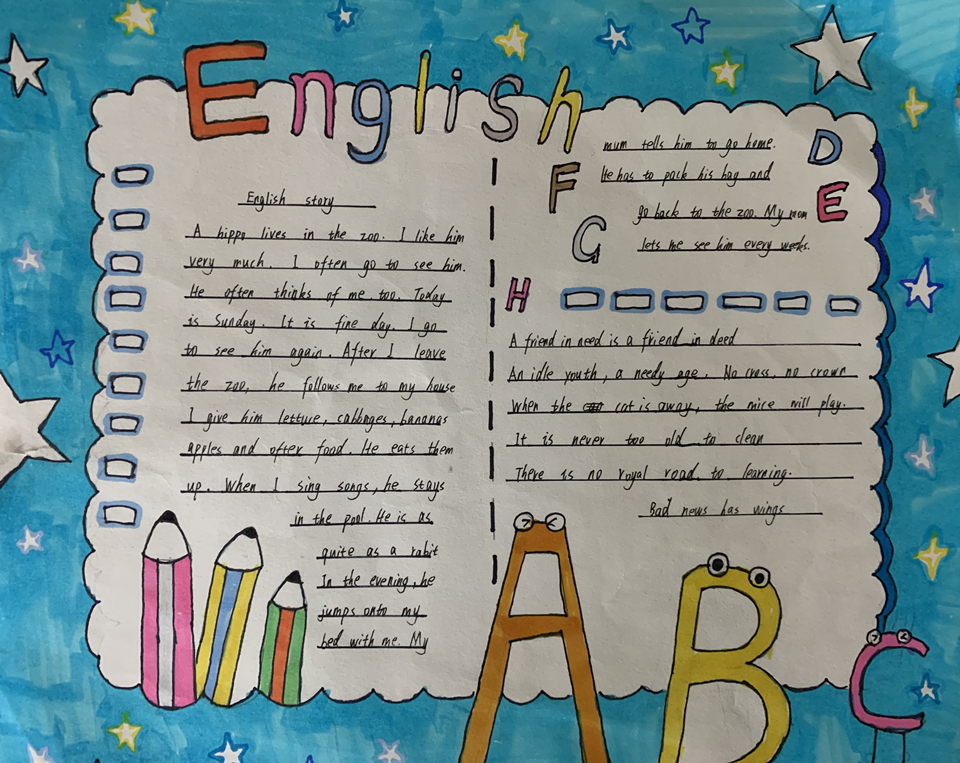 English
English story
A hippo lives in the zoo. I like him
very much. I often go to see him.
He often thinks of me too. Today
is Sunday. It is fine day. I go
to see him again. After I leave
the zoo, he follows me to my house
I give him lettuce, cabbages, bananas
apples and ofter food. He eats them
up. When I sing songs, he stays
in the pool. He is as
quite as a rabit
In the evening, he
jumps onto my
bed with me. My
mum tells him to go home.
He has to pack his bag and
go back to the zoo. My mom
lets me see him every weeks.
D
E
F
G
H
A friend in need is a friend in deed
An idle youth, a needy age. No cross, no crown
When the cat is away, the mice will play.
It is never too old to clean
There is no royal road to learning.
Bad news has wings
A B C